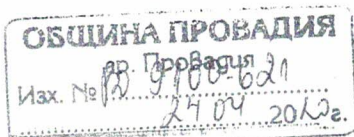 ОБЩИНА ПРОВАДИЯ
гр. Провадия
Изх. № РД 9100-621
24 04 2020г.